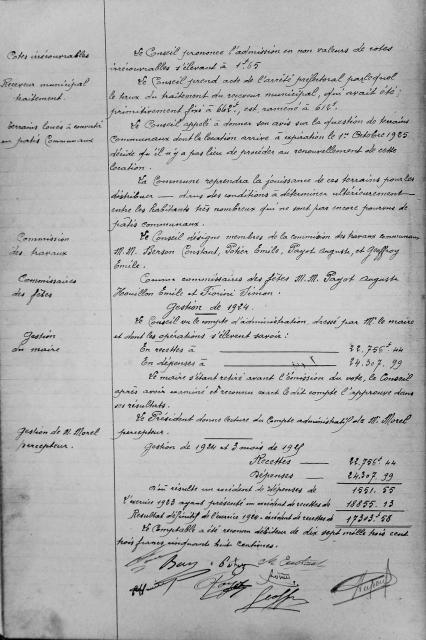 Cotes irrécouvrables
Le Conseil prononce l'admission en non valeurs de cotes
irrécouvrables s'élevant à 1f 65
Receveur municipal
traitement.
Le Conseil prend acte de l'arrêté préfectoral par lequel
le taux du traitement du receveur municipal, qui avait été
primitivement fixé à 662f, est ramené à 612f.
Terrains loués à
en patis Communaux
Le Conseil appelé à donner son avis sur la question de terrains
Communaux dont la location arrive à expiration le 1er Octobre 1925
décide qu'il n'y a pas lieu de procéder au renouvellement de cette
location.
La Commune reprendra la jouissance de ces terrains pour les
distribuer — dans des conditions à déterminer ultérieurement —
entre les habitants très nombreux qui ne sont pas encore pourvus de
patis communaux.
Commission
des travaux
Le Conseil désigne membres de la Commission des travaux communaux
M.M. Berson Constant, Potier Emile, Payot Auguste, et Geffroy
Emile.
Commissaires
des fêtes
Comme commissaires des fêtes M.M. Payot Auguste
Houillon Emile et Fiorini Simon.
Gestion de 1924.
Gestion
du maire
Le Conseil vu le compte d'administration, dressé par M. le maire
et dont les opérations s'élèvent savoir :
En recettes à 22.756f 44
En dépenses à 24.307. 99
Le maire s'étant retiré avant l'émission du vote, le Conseil
après avoir examiné et reconnu exact le dit compte l'approuve dans
ses résultats.
Gestion de M. Morel
percepteur.
Le Président donne lecture du Compte administratif de M. Morel
percepteur.
Gestion de 1924 et 3 mois de 1925
Recettes — 22.756f 44
Dépenses — 24.307. 99
D'où résulte un excédent de dépenses de 1551. 55
L'exercice 1923 ayant présenté un excédent de recettes de 18855. 13
Résultat définitif de l'exercice 1924 - excédent de recettes de 17303f 58
Le Comptable a été reconnu débiteur de dix sept mille trois cent
trois francs cinquante huit centimes.